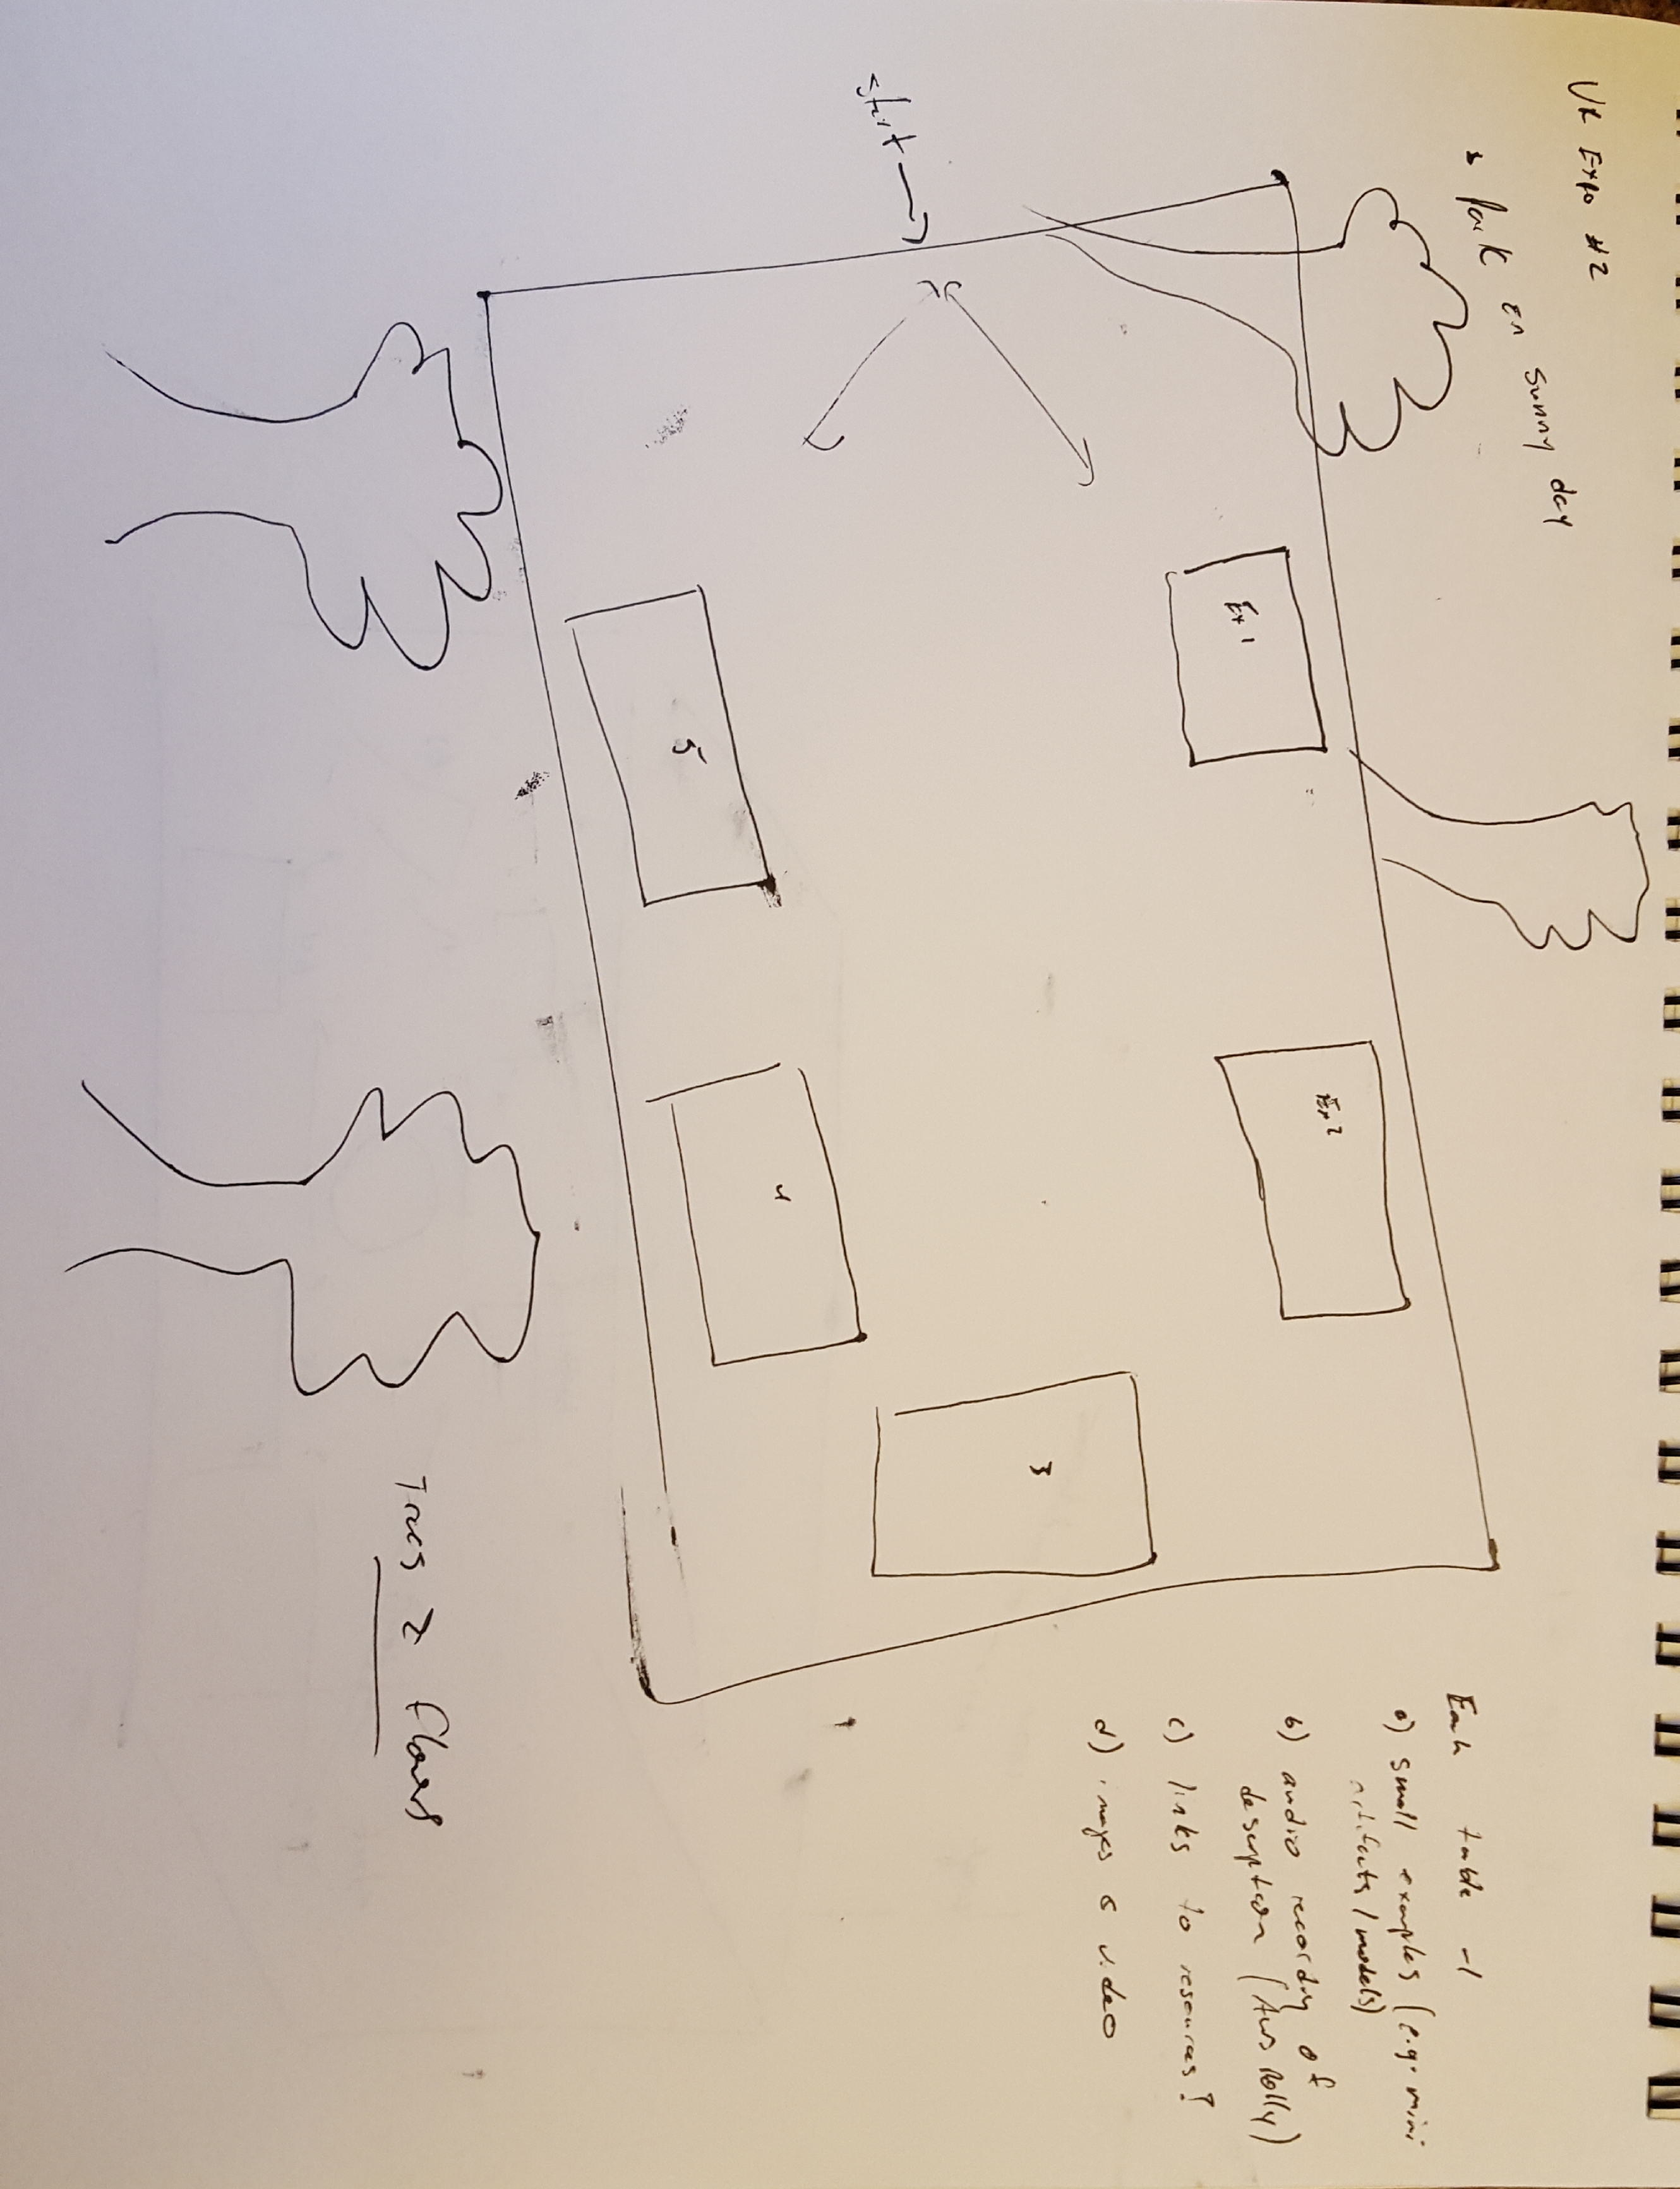 VR Expo #2
→ Park on sunny day
start →
Ex 1
Ex 2
3
4
5
Each table -
a) small examples (e.g. mini
artifacts/models)
b) audio recording of
description (AWS Polly)
c) links to resources?
d) images & video
Trees & flowers